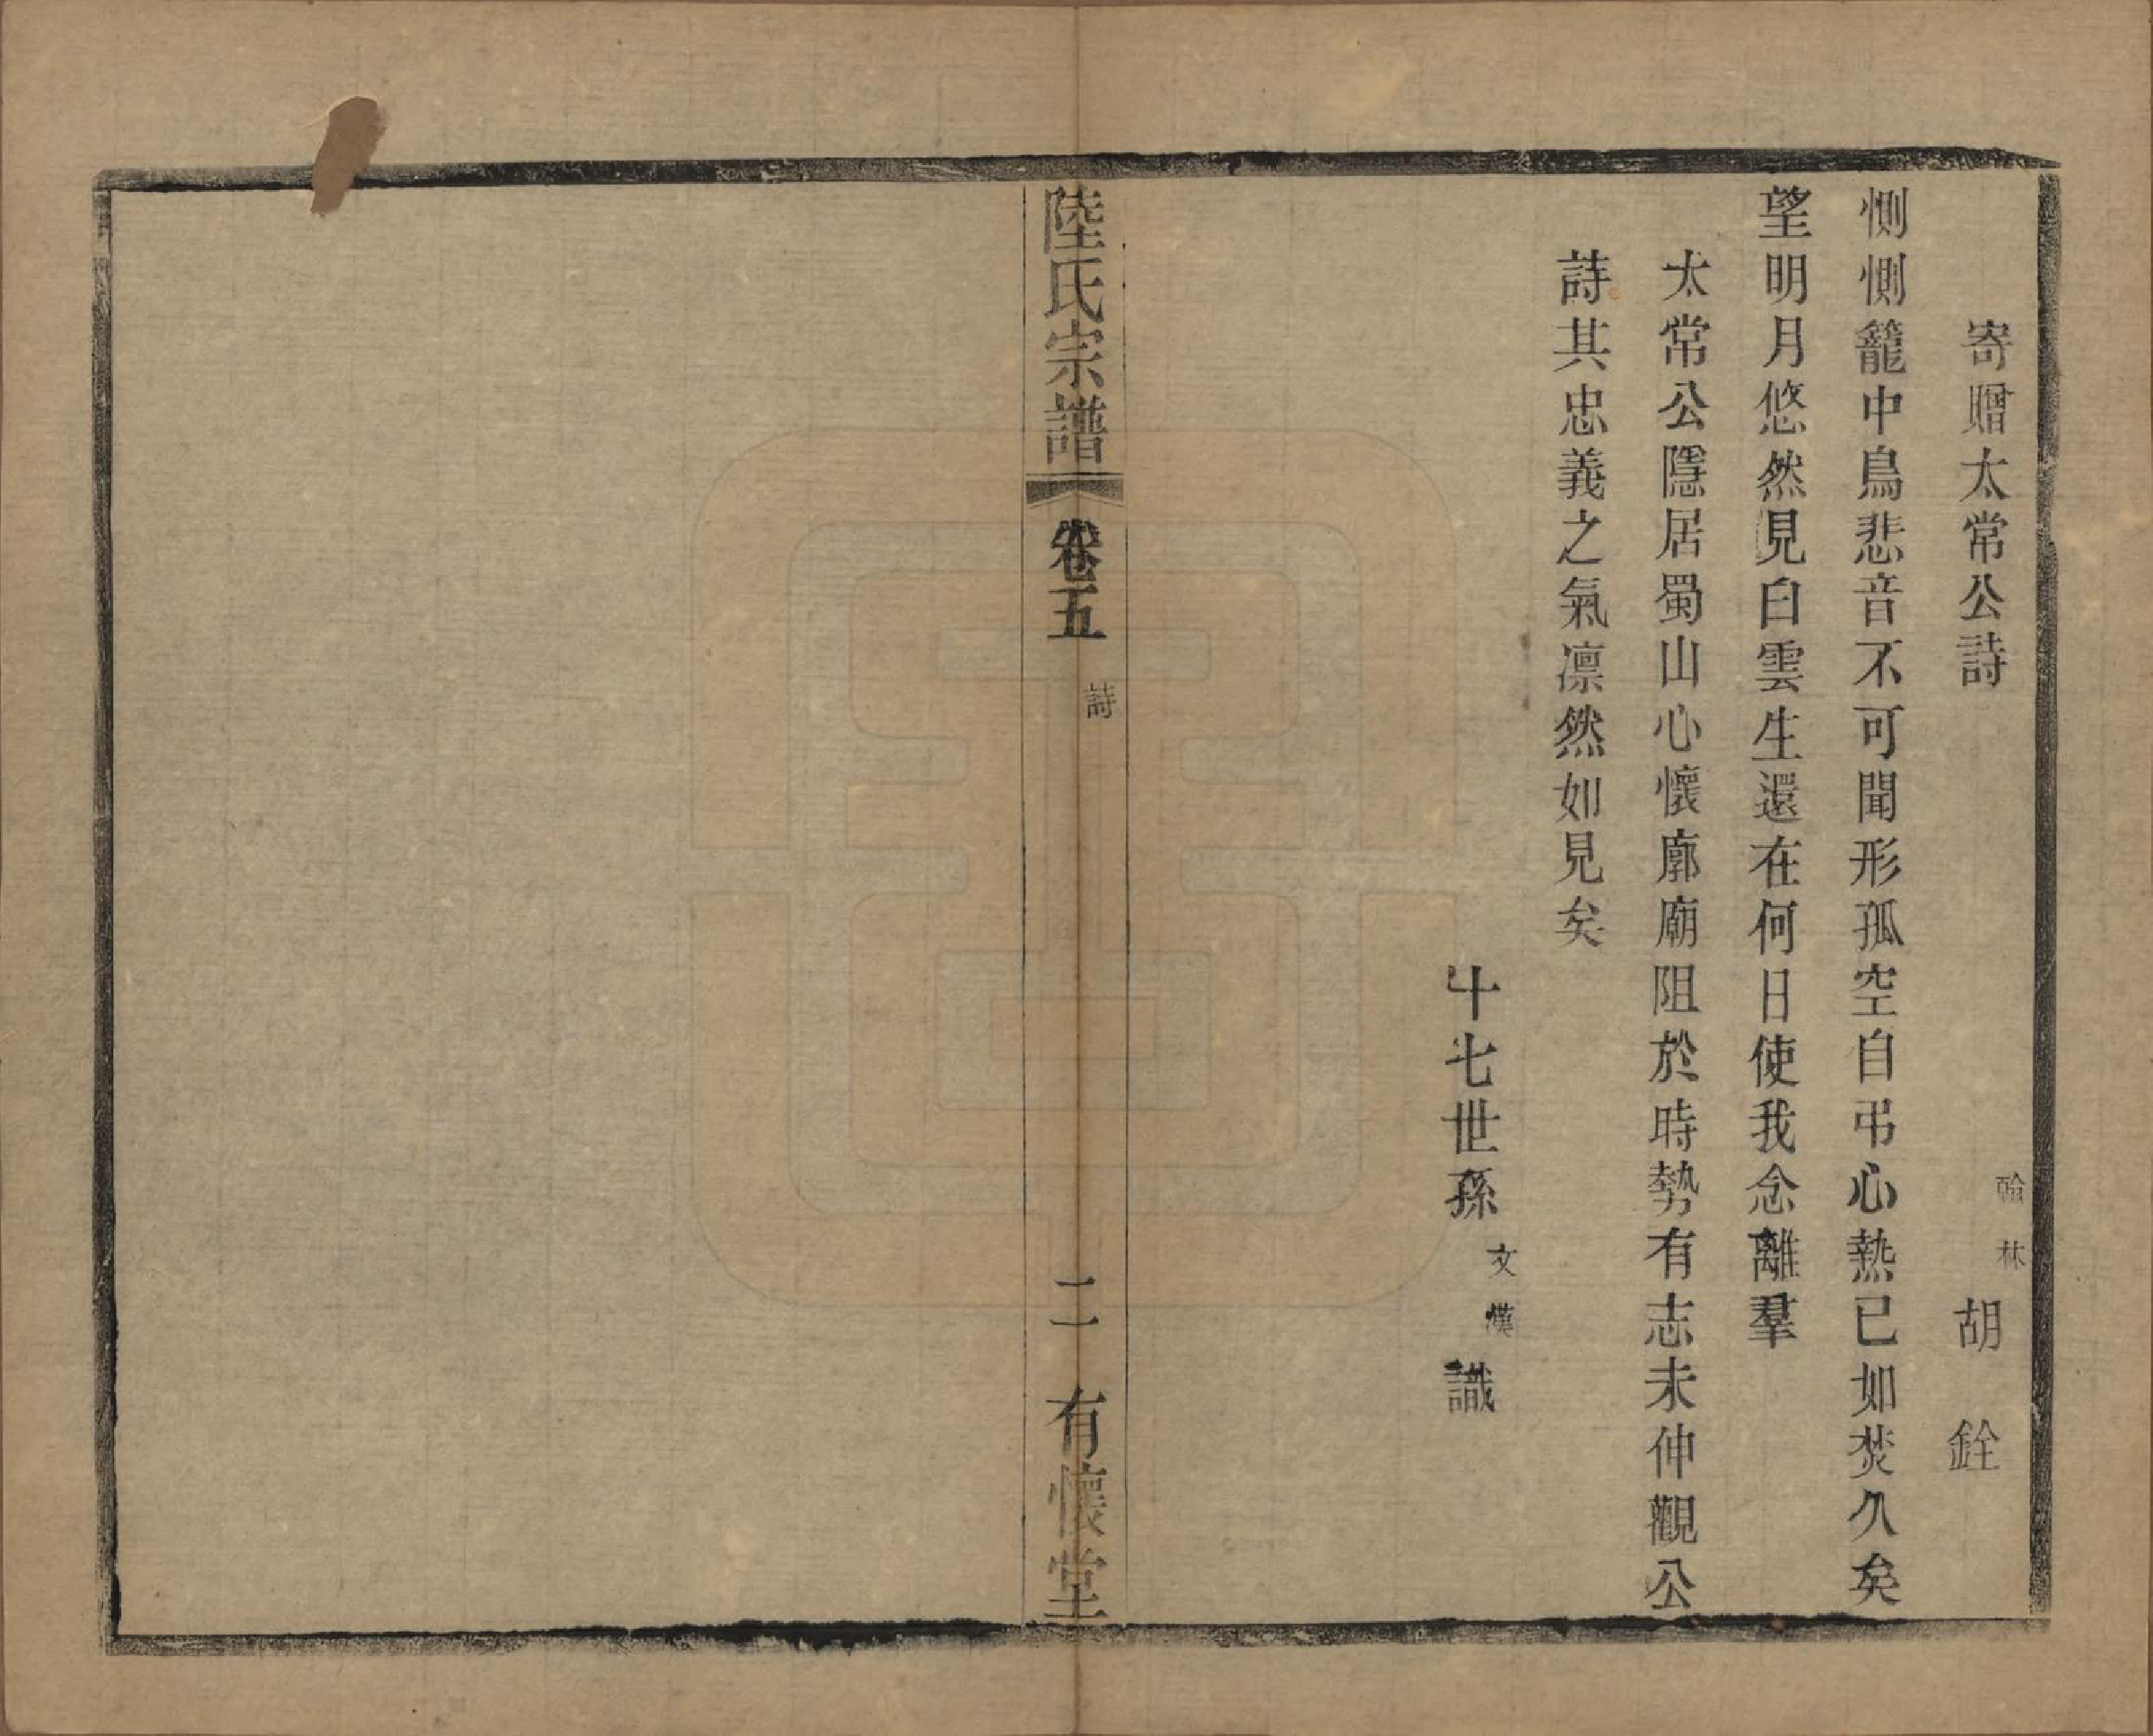 寄贈太常公詩 翰林 胡銓
惻惻籠中鳥悲音不可聞形孤空自弔心熱已如焚久矣
望明月悠然見白雲生還在何日使我念離羣
太常公隱居蜀山心懷廓廟阻於時勢有志未伸觀公
詩其忠義之氣凛然如見矣
十七世孫 文漢 識
陸氏宗譜 卷五 詩 二 有懷堂